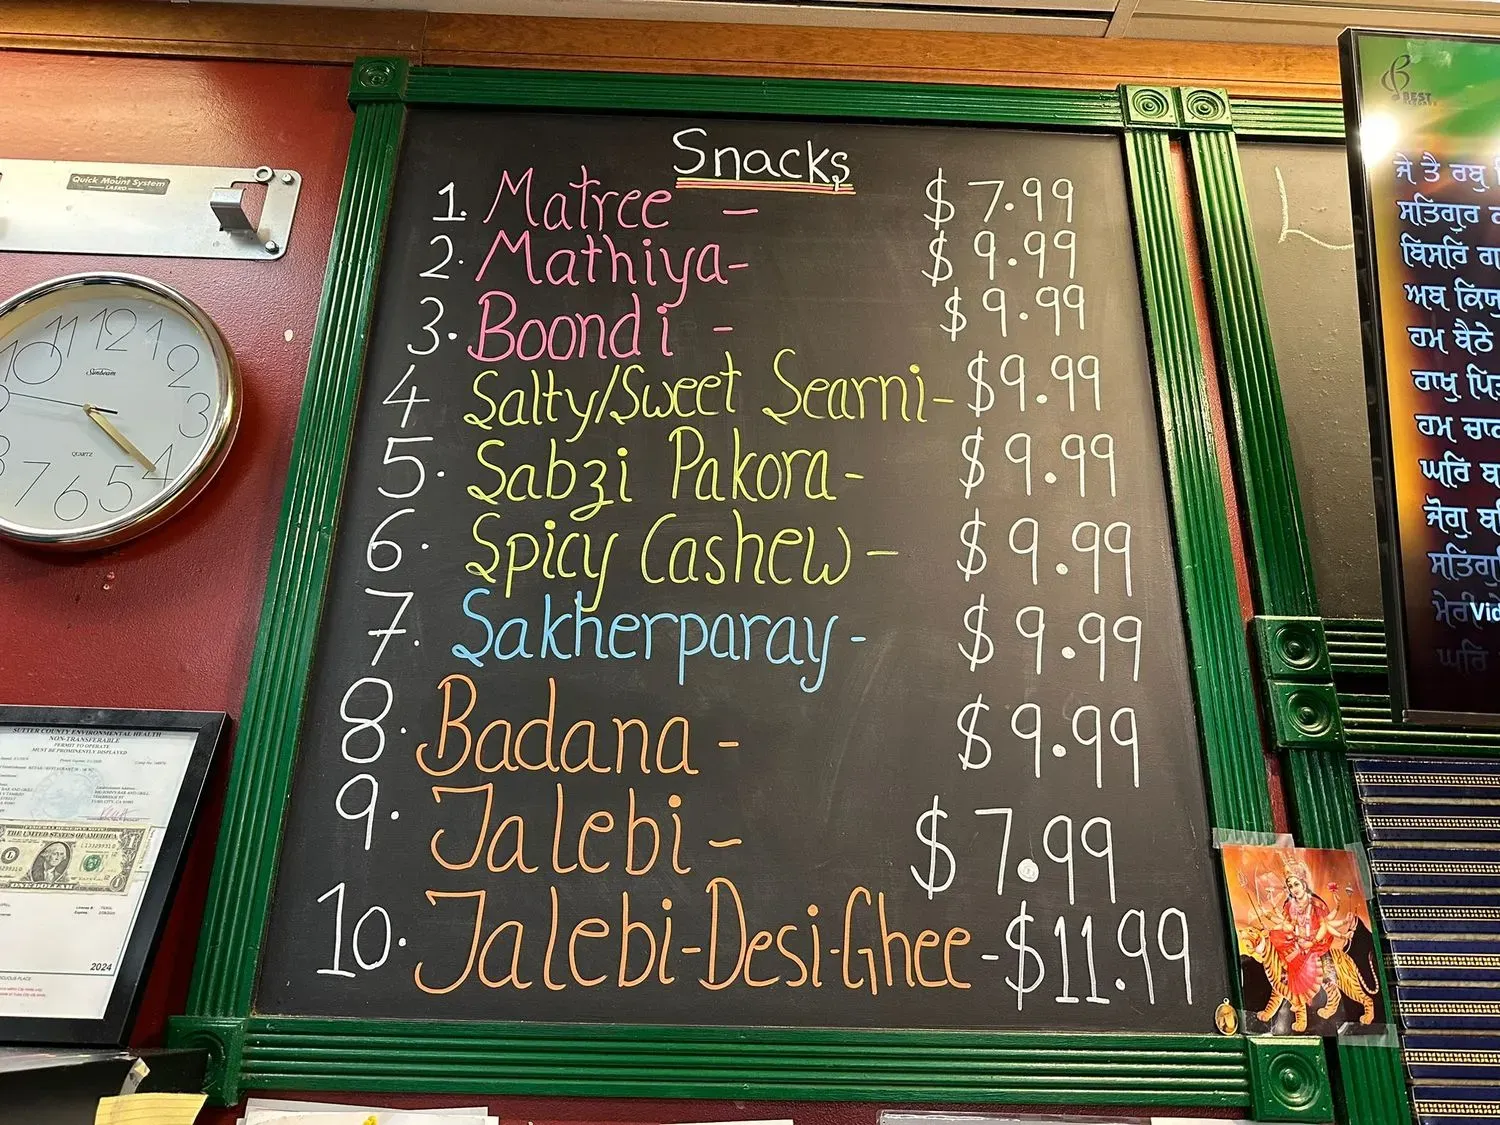 Snacks
1. Matree - $7.99
2. Mathiya- $9.99
3. Boondi - $9.99
4 Salty/Sweet Searni- $9.99
5. Sabzi Pakora- $9.99
6. Spicy Cashew - $9.99
7. Sakherparay- $9.99
8. Badana - $9.99
9. Jalebi - $7.99
10. Jalebi-Desi-Ghee-$11.99
Quick Mount System
LASKO
11 12 1
10 2
3
7 6 5 4
Sunbeam
QUARTZ
SUTTER COUNTY ENVIRONMENTAL HEALTH
NON-TRANSFERABLE
PERMIT TO OPERATE
MUST BE PROMINENTLY DISPLAYED
THE UNITED STATES OF AMERICA
ONE DOLLAR
2024
BEST
RECORDS
ਜੇ ਤੈ ਰਬੁ
ਸਤਿਗੁਰ
ਬਿਸਰਿ
ਅਬ ਕਿਯੁ
ਹਮ ਬੈਠੇ
ਰਾਖੁ
ਹਮ
ਘਰਿ
ਜੋਗੁ
ਘਰਿ